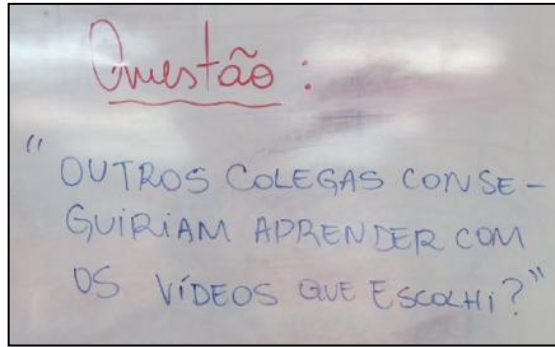 Questão:
"OUTROS COLEGAS CONSE-
GUIRIAM APRENDER COM
OS VÍDEOS QUE ESCOLHI?"